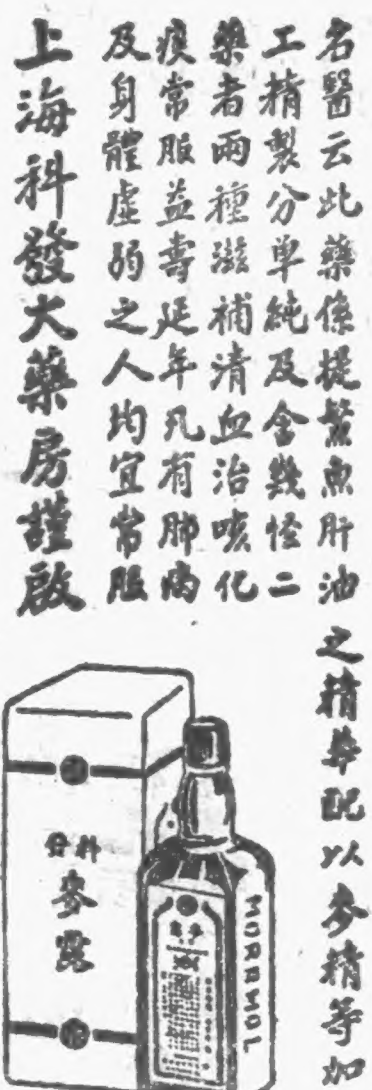 名醫云此藥係提鱉魚肝油之精華配以麥精等加
工精製分單純及含幾怪二
藥者兩種滋補清血治咳化
痰常服益壽延年凡有肺病
及身體虛弱之人均宜常服
上海科發大藥房謹啟
科發
麥露
MORRHOL
麥露